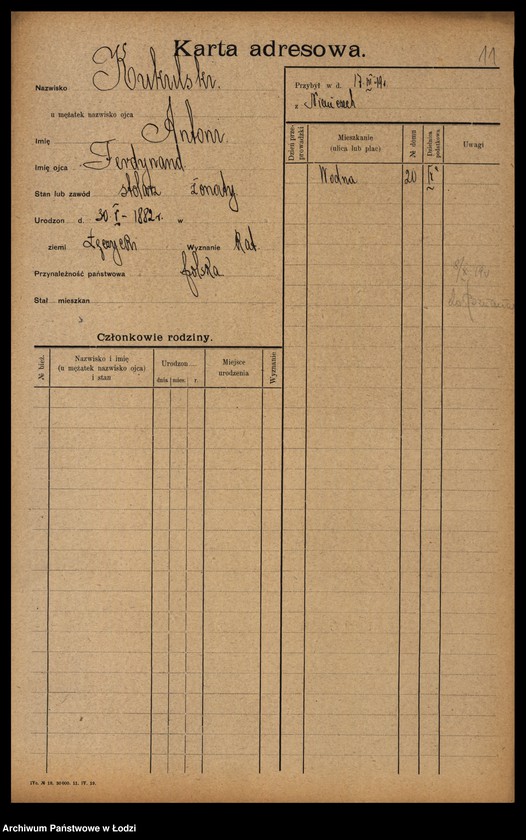 Karta adresowa.
11
Nazwisko Kukulski.
u mężatek nazwisko ojca
Imię Antoni
Imię ojca Ferdynand
Stan lub zawód stolarz żonaty
Urodzon d. 30.I - 1882 r. w
ziemi Łęczycki Wyznanie Kat.
Przynależność państwowa polska
Stał mieszkan
Przybył w d. 17.IV-19 r.
z Niemczech
Dzień przeprowadzki
Mieszkanie (ulica lub plac)
№ domu
Dzielnica podatkowa.
Uwagi
Wodna 20
Członkowie rodziny.
№ bież.
Nazwisko i imię
(u mężatek nazwisko ojca)
i stan
Urodzon
dnia mies. r.
Miejsce
urodzenia
Wyznanie
IVa. № 18. 30 000. 12. IV. 19.
Archiwum Państwowe w Łodzi